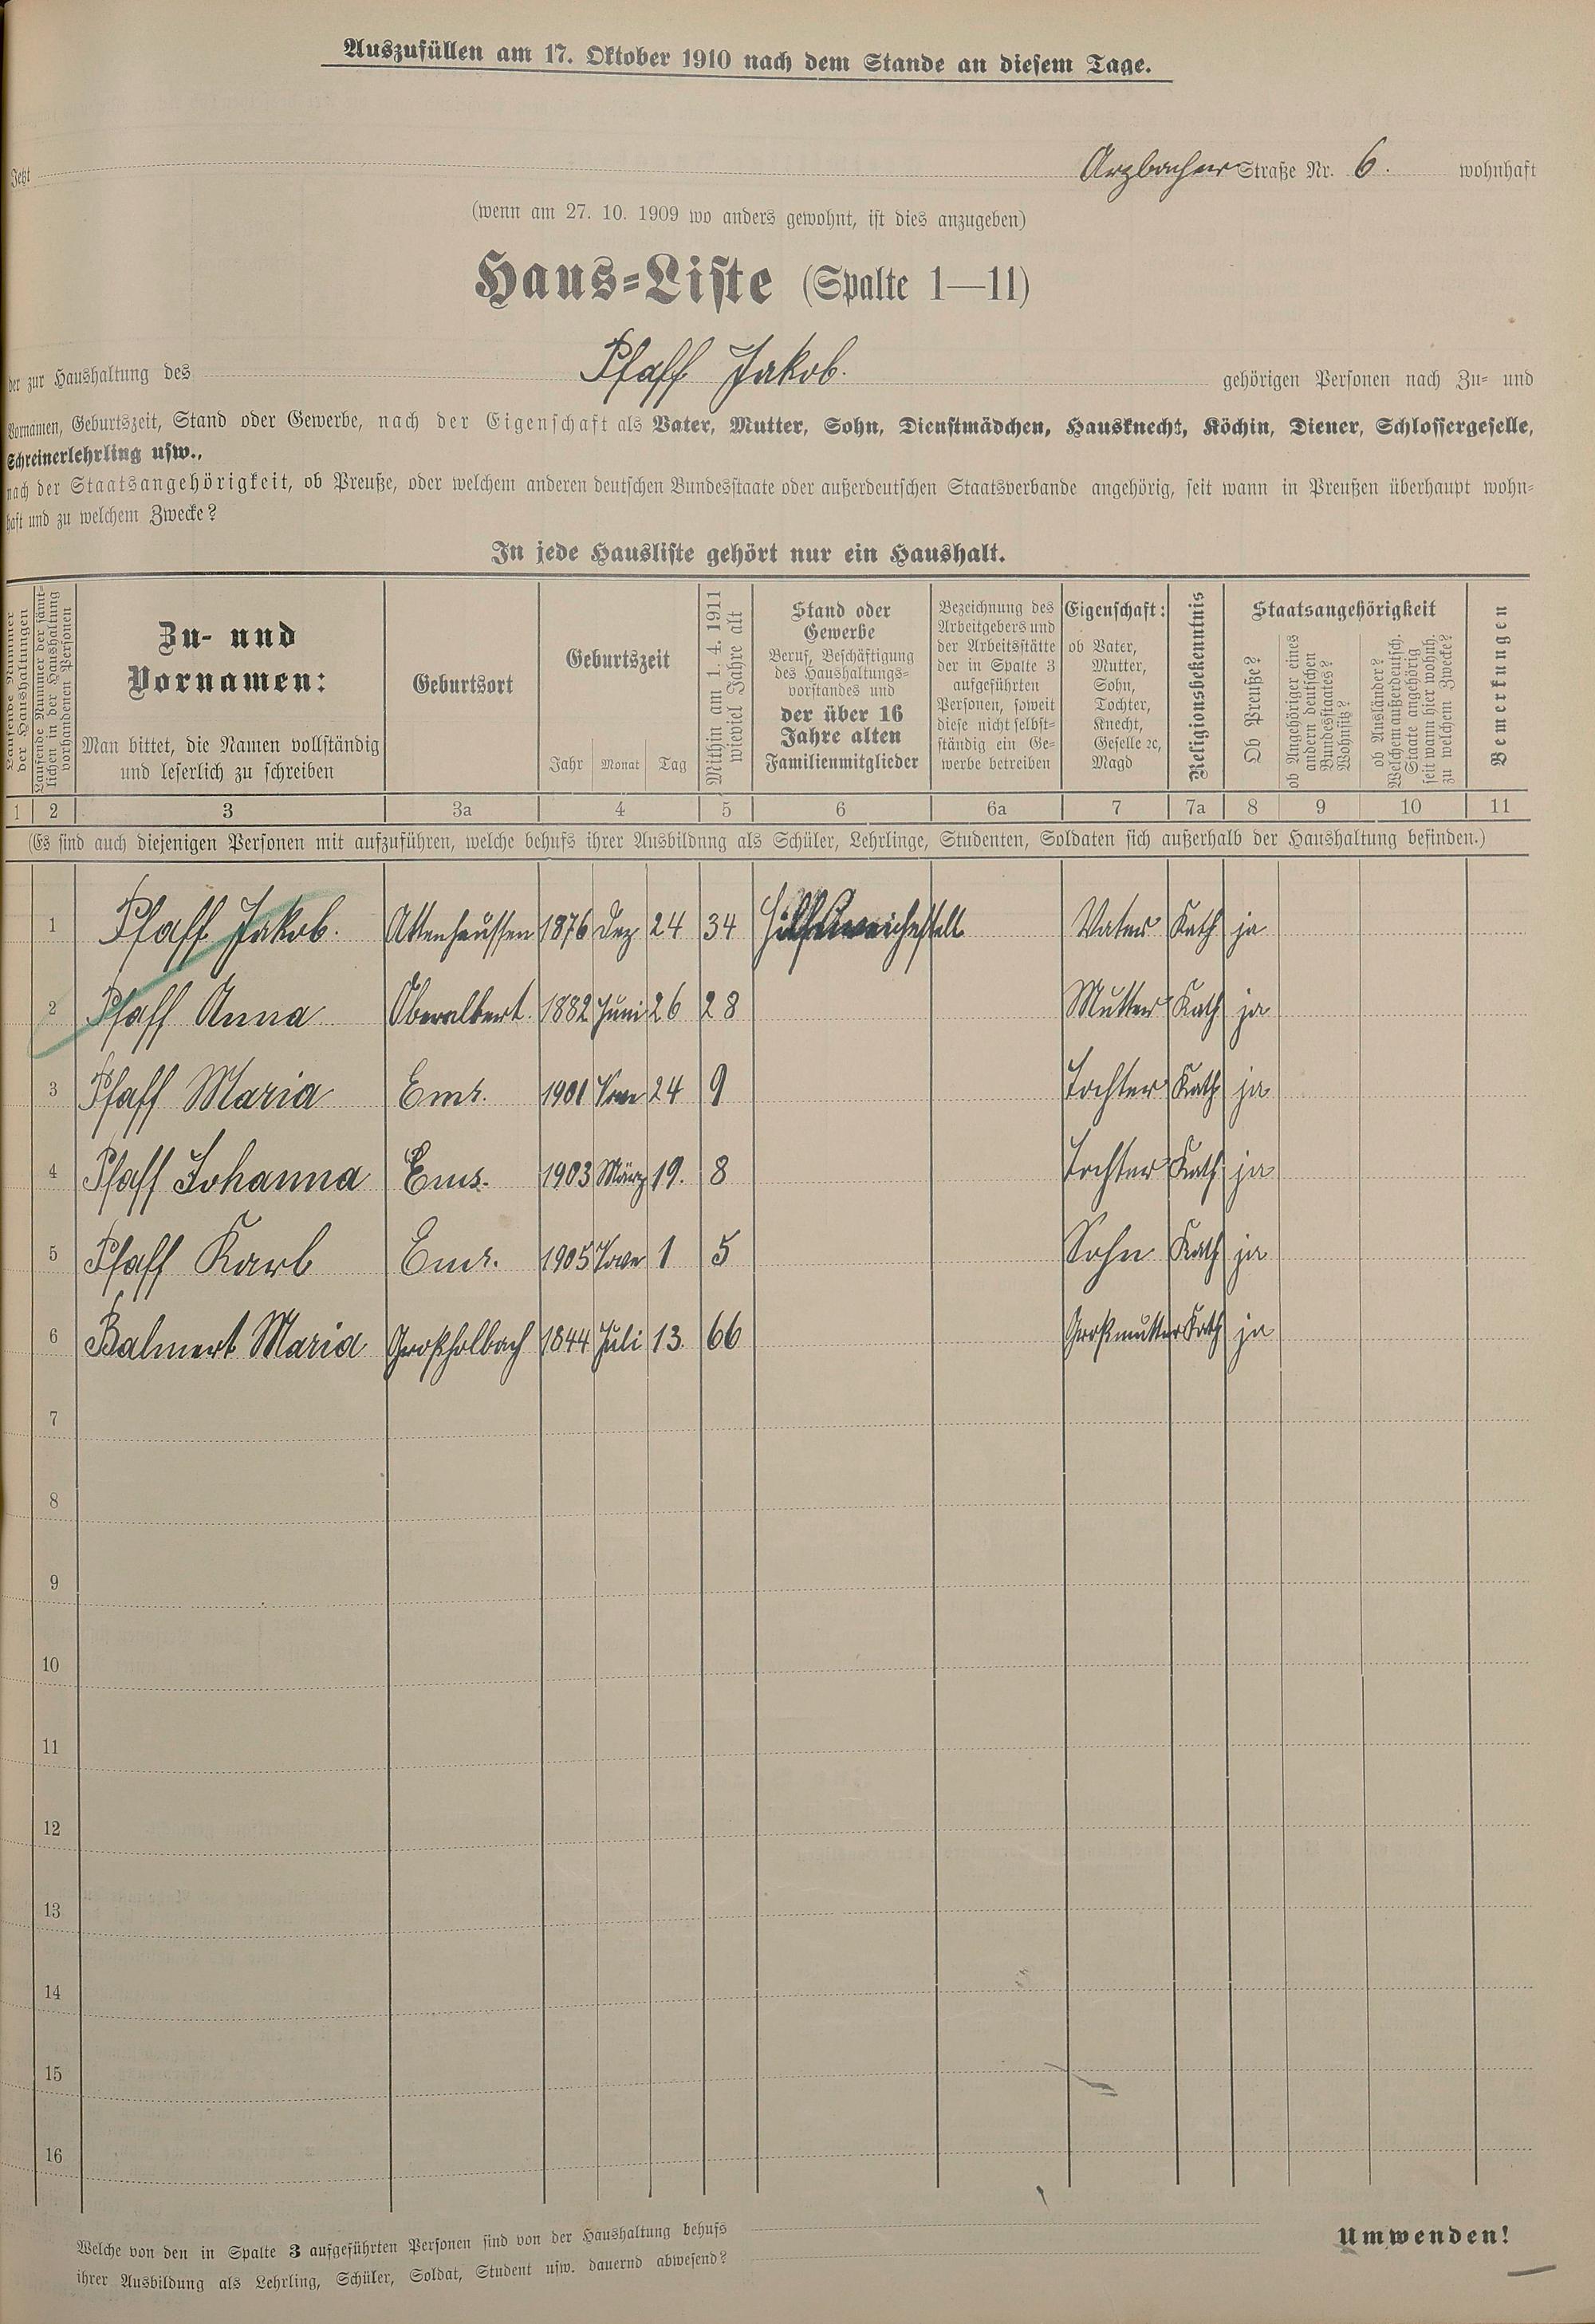 Auszufüllen am 17. Oktober 1910 nach dem Stande an diesem Tage.
Jetzt Arzbacher Straße Nr. 6. wohnhaft
(wenn am 27. 10. 1909 wo anders gewohnt, ist dies anzugeben)
Haus-Liste (Spalte 1—11)
der zur Haushaltung des Pfaff Jakob. gehörigen Personen nach Zu- und
Vornamen, Geburtszeit, Stand oder Gewerbe, nach der Eigenschaft als Vater, Mutter, Sohn, Dienstmädchen, Hausknecht, Köchin, Diener, Schlossergeselle,
Schreinerlehrling usw.,
nach der Staatsangehörigkeit, ob Preuße, oder welchem anderen deutschen Bundesstaate oder außerdeutschen Staatsverbande angehörig, seit wann in Preußen überhaupt wohn-
haft und zu welchem Zwecke?
In jede Hausliste gehört nur ein Haushalt.
Laufende Nummer
der Haushaltungen
Laufende Nummer der sämt-
lichen in der Haushaltung
vorhandenen Personen
Zu- und
Vornamen:
Man bittet, die Namen vollständig
und leserlich zu schreiben
Geburtsort
Geburtszeit
Jahr Monat Tag
Mithin am 1. 4. 1911
wieviel Jahre alt
Stand oder
Gewerbe
Beruf, Beschäftigung
des Haushaltungs-
vorstandes und
der über 16
Jahre alten
Familienmitglieder
Bezeichnung des
Arbeitgebers und
der Arbeitsstätte
der in Spalte 3
aufgeführten
Personen, soweit
diese nicht selbst-
ständig ein Ge-
werbe betreiben
Eigenschaft:
ob Vater,
Mutter,
Sohn,
Tochter,
Knecht,
Geselle ꝛc,
Magd
Religionsbekenntnis
Staatsangehörigkeit
Ob Preuße?
ob Angehöriger eines
andern deutschen
Bundesstaates?
Wohnsitz?
ob Ausländer?
Welchem außerdeutsch.
Staate angehörig
seit wann hier wohnh.
zu welchem Zwecke?
Bemerkungen
1 2 3 3a 4 5 6 6a 7 7a 8 9 10 11
(Es sind auch diejenigen Personen mit aufzuführen, welche behufs ihrer Ausbildung als Schüler, Lehrlinge, Studenten, Soldaten sich außerhalb der Haushaltung befinden.)
1 Pfaff Jakob. Attenhaussen 1876 Dez 24 34 Vater Kath ja
2 Pfaff Anna 1882 Juni 26 28 Mutter Kath ja
3 Pfaff Maria Ems. 1901 24 9 Tochter Kath ja
4 Pfaff Johanna Ems. 1903 März 19. 8 Tochter Kath ja
5 Pfaff Karl Ems. 1905 1 5 Sohn Kath ja
6 Balmert Maria Großholbach 1844 Juli 13. 66 Großmutter Kath ja
7
8
9
10
11
12
13
14
15
16
Welche von den in Spalte 3 aufgeführten Personen sind von der Haushaltung behufs
ihrer Ausbildung als Lehrling, Schüler, Soldat, Student usw. dauernd abwesend?
Umwenden!